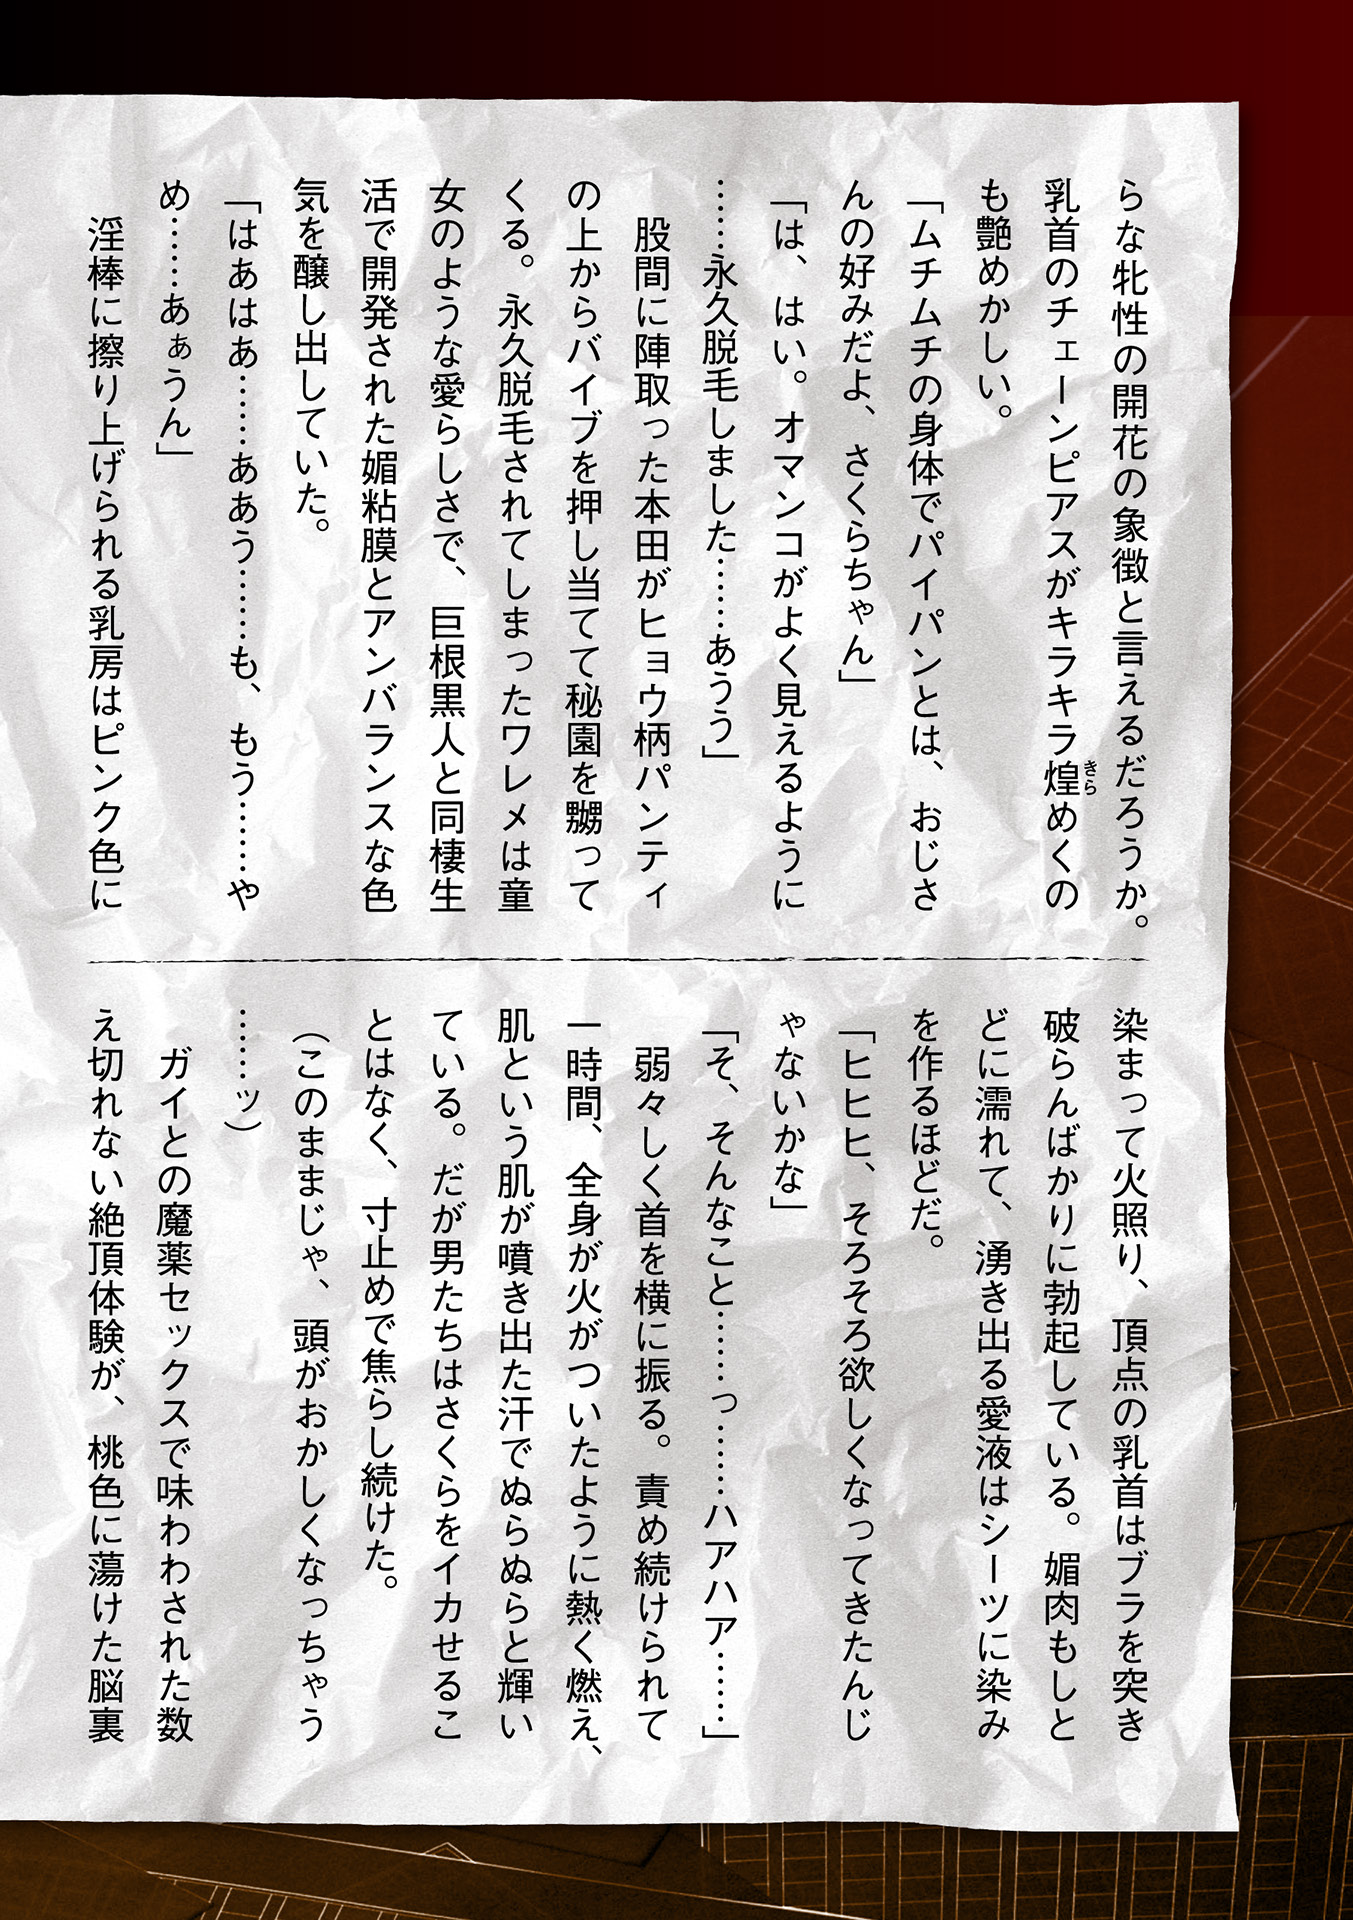 らな牝性の開花の象徴と言えるだろうか。
乳首のチェーンピアスがキラキラ煌めくの
きら
も艶めかしい。
「ムチムチの身体でパイパンとは、おじさ
んの好みだよ、さくらちゃん」
「は、はい。オマンコがよく見えるように
……永久脱毛しました……あうう」
　股間に陣取った本田がヒョウ柄パンティ
の上からバイブを押し当てて秘園を嬲って
くる。永久脱毛されてしまったワレメは童
女のような愛らしさで、巨根黒人と同棲生
活で開発された媚粘膜とアンバランスな色
気を醸し出していた。
「はあはあ……ああう……も、もう……や
め……あぁうん」
　淫棒に擦り上げられる乳房はピンク色に
染まって火照り、頂点の乳首はブラを突き
破らんばかりに勃起している。媚肉もしと
どに濡れて、湧き出る愛液はシーツに染み
を作るほどだ。
「ヒヒヒ、そろそろ欲しくなってきたんじ
ゃないかな」
「そ、そんなこと……っ……ハアハア……」
　弱々しく首を横に振る。責め続けられて
一時間、全身が火がついたように熱く燃え、
肌という肌が噴き出た汗でぬらぬらと輝い
ている。だが男たちはさくらをイカせるこ
とはなく、寸止めで焦らし続けた。
（このままじゃ、頭がおかしくなっちゃう
……ッ）
　ガイとの魔薬セックスで味わわされた数
え切れない絶頂体験が、桃色に蕩けた脳裏